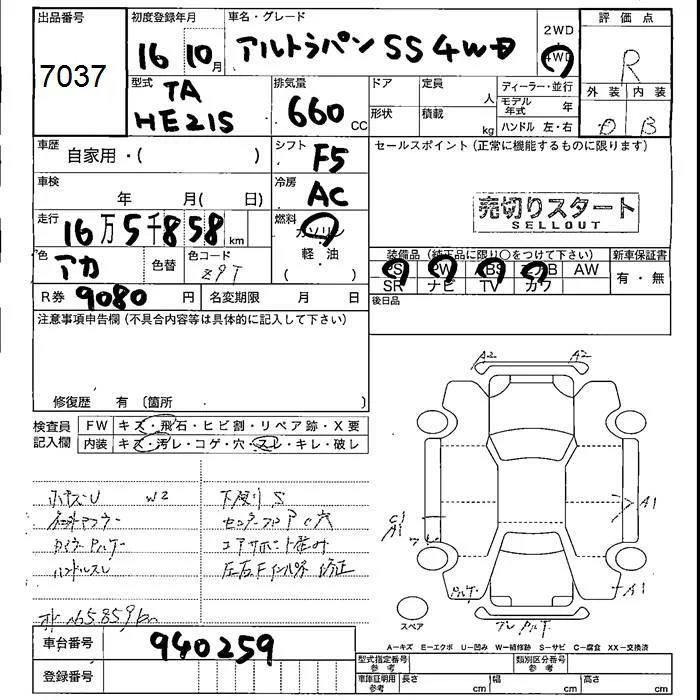 出品番号
7037
初度登録年月
16 10月
車名・グレード
アルトラパン SS 4WD
2WD
4WD
評価点
R
外装 内装
D B
型式
TA
HE21S
排気量
660 CC
ドア
定員
人
形状
積載
kg
ディーラー・並行
モデル年式 年
ハンドル 左・右
車歴
自家用・( )
シフト
F5
セールスポイント(正常に機能するものに限ります)
売切りスタート
SELLOUT
車検
年 月( 日)
冷房
AC
走行
16万5千858km
燃料
ガソリン
軽・油
色
アカ
色替
色コード
Z9T
装備品(純正品に限り○をつけて下さい)
PS PW ABS エアB AW
SR ナビ TV カワ
新車保証書
有・無
R券 9080円
名変期限 月 日
後日品
注意事項申告欄(不具合内容等は具体的に記入して下さい)
修復歴 有(箇所 )
検査員記入欄
FW キズ・飛石・ヒビ割・リペア跡・X要
内装 キズ・汚レ・コゲ・穴・スレ・キレ・破レ
W2
下廻り S
ハンドルスレ
165.859km
A2 A2
A1
C1
A1
A1
スペア
A=キズ E=エクボ U=凹み W=補修跡 S=サビ C=腐食 XX=交換済
車台番号
940259
登録番号
型式指定番号 参考
類別区分番号 参考
車庫証明用 参考
長さ cm
幅 cm
高さ cm